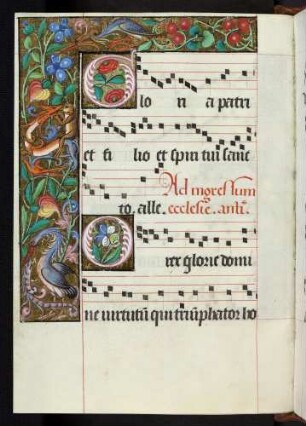 Glo ri a patri
et fi lio et spiri tui sanc
Ad magnificatum
to. alle. ecclesie. anti.
O rex glorie domi
ne virtutū qui triūphator ho